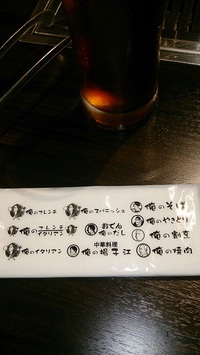 俺のフレンチ
俺のスパニッシュ
俺のそば
俺のやきとり
俺のフレンチ
イタリアン
おでん
俺のだし
俺の割烹
俺のイタリアン
中華料理
俺の揚子江
俺の焼肉